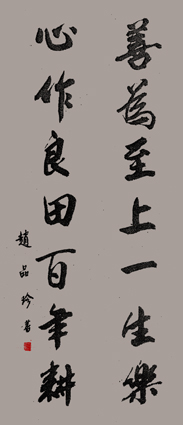 善為至上一生樂
心作良田百年耕
趙品珍書